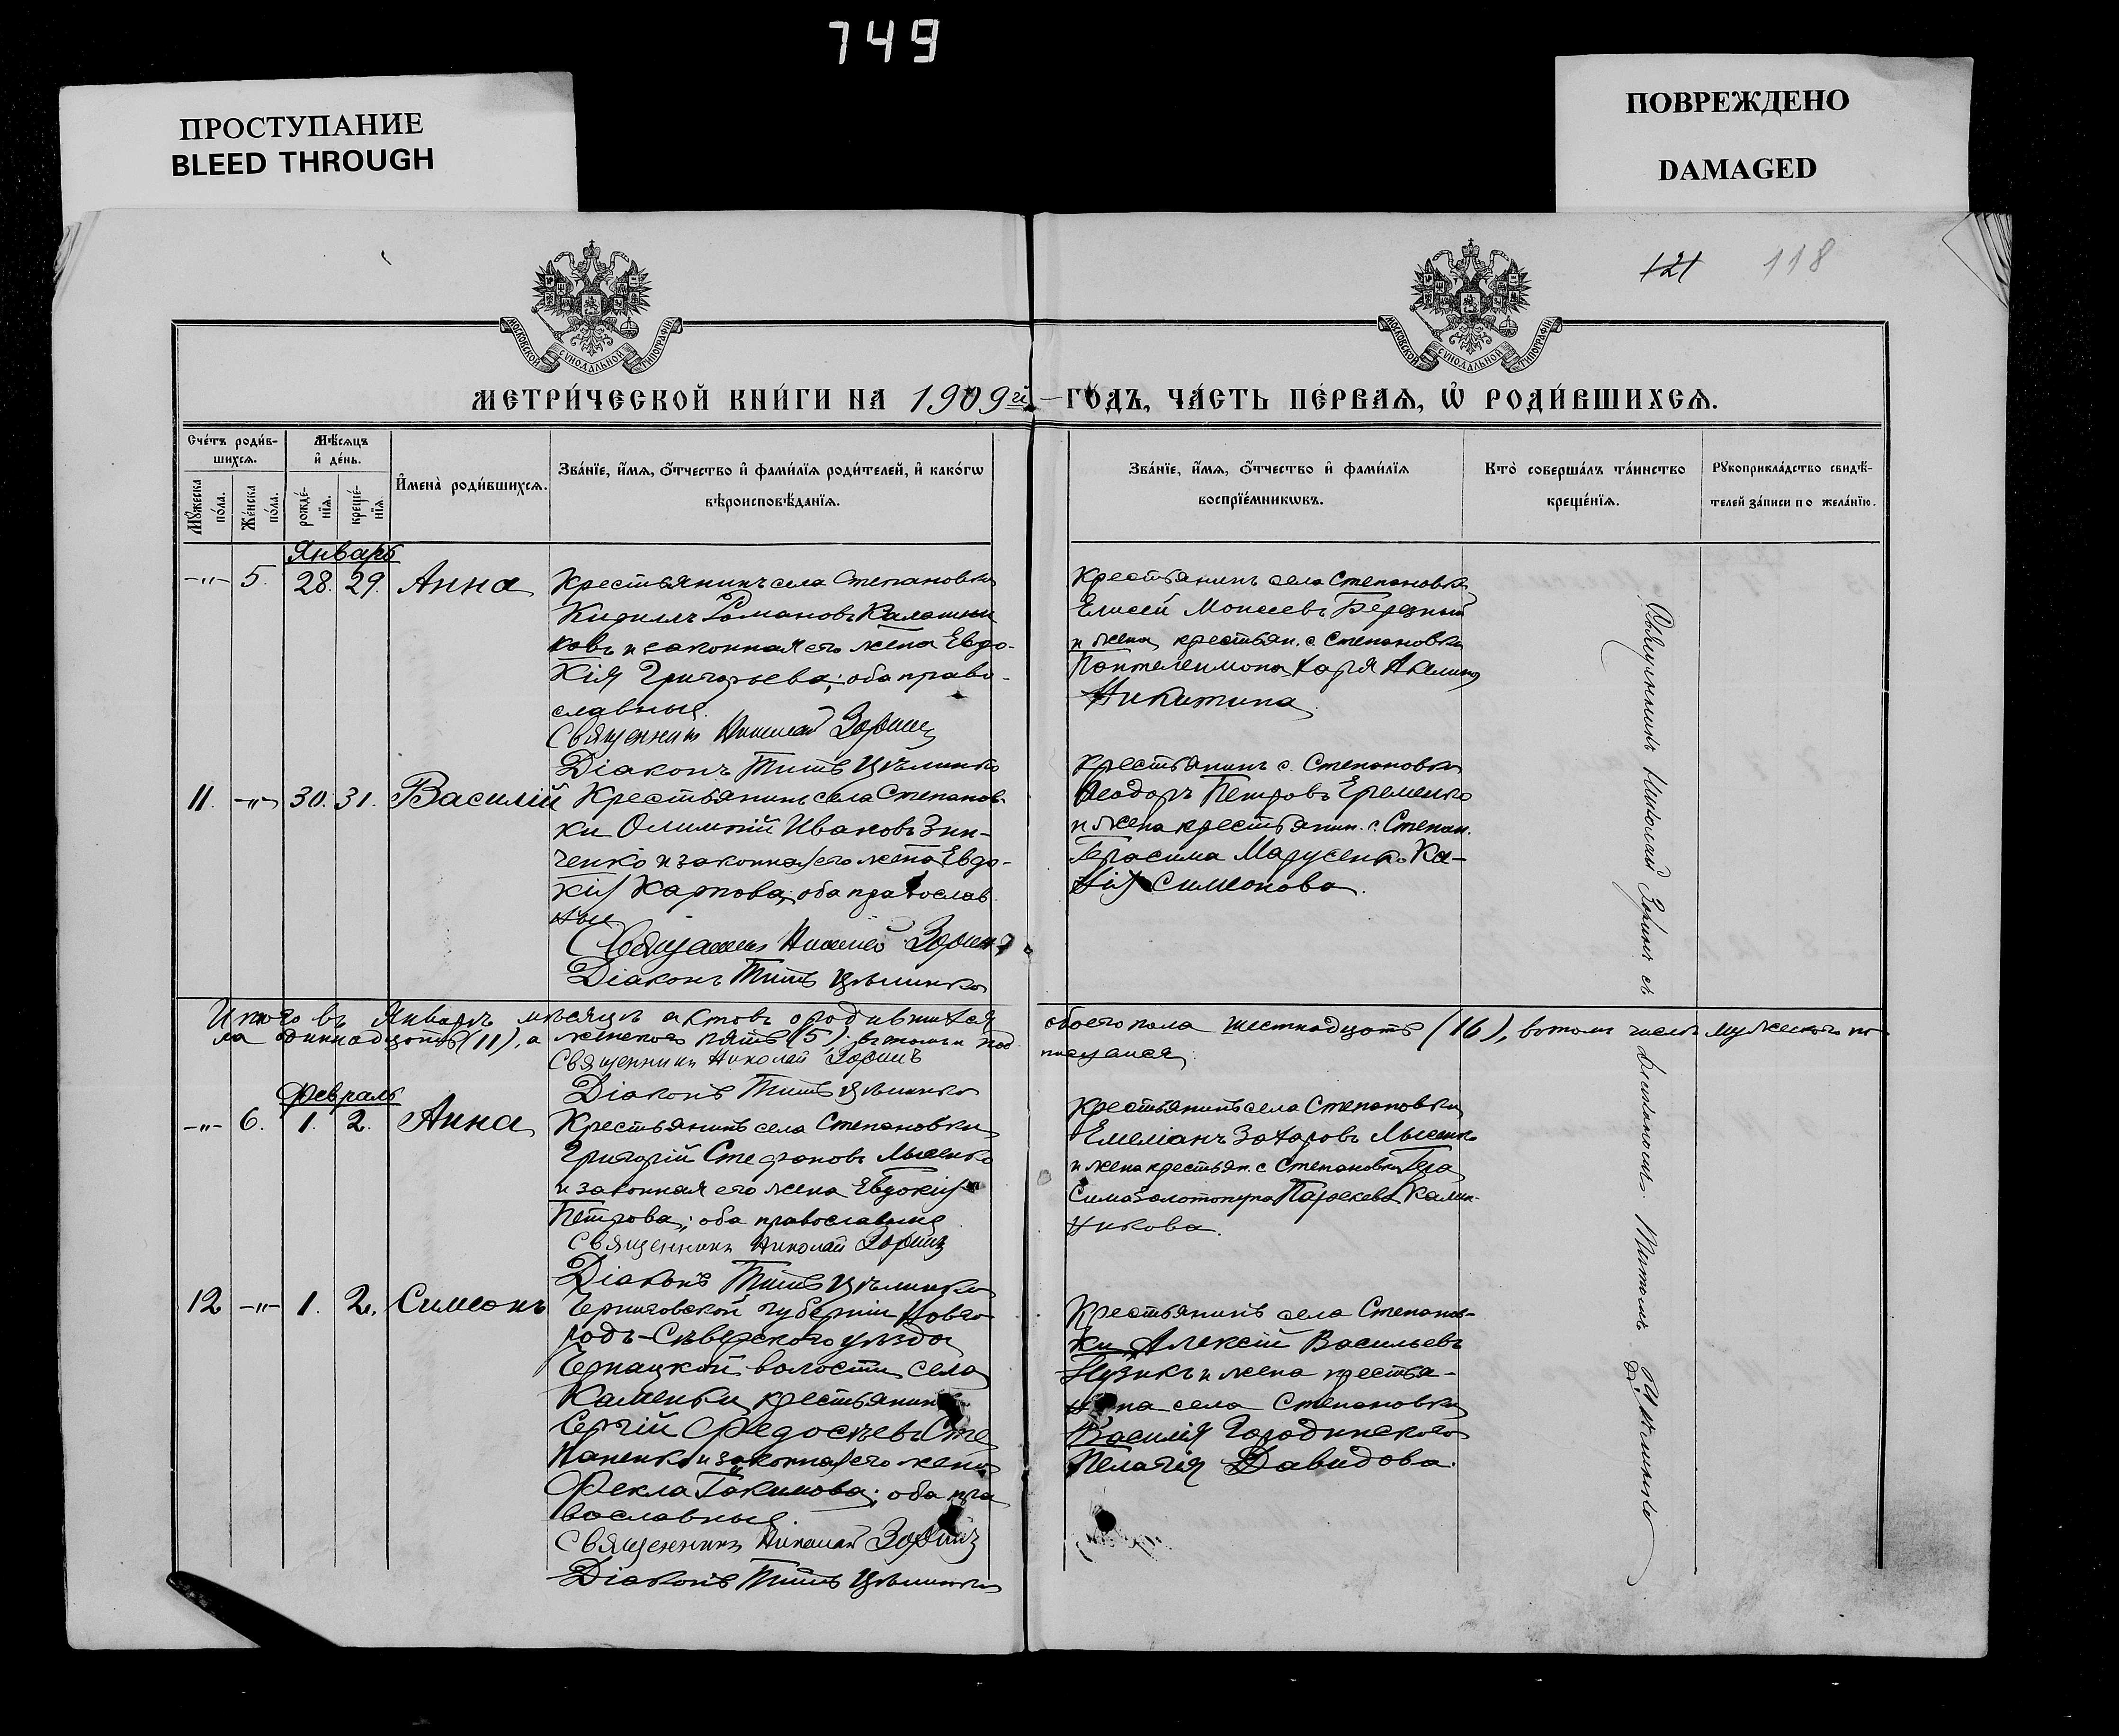 749
ПРОСТУПАНИЕ
BLEED THROUGH
ПОВРЕЖДЕНО
DAMAGED
121 118
МОСКОВСКОЙ СѴНОДАЛЬНОЙ ТИПОГРАФІИ
МОСКОВСКОЙ СѴНОДАЛЬНОЙ ТИПОГРАФІИ
МЕТРИ́ЧЕСКОЙ КНИ́ГИ НА 1909й ГО́ДЪ, ЧА́СТЬ ПЕ́РВАѦ, Ѡ҆ РОДИ́ВШИХСѦ.
Сче́тъ роди́в-
шихсѧ.
Мꙋ́жеска по́ла.
Же́нска по́ла.
Мѣ́сѧцъ
и҆ де́нь.
рожде́-
нїѧ.
креще́-
нїѧ.
И҆мена̀ роди́вшихсѧ.
Зва́нїе, и҆́мѧ, ѻ҆́тчество и҆ фами́лїѧ роди́телей, и҆ како́гѡ
вѣроисповѣ́данїѧ.
Зва́нїе, и҆́мѧ, ѻ҆́тчество и҆ фами́лїѧ
воспрїе́мникѡвъ.
Кто̀ соверша́лъ та́инство
креще́нїѧ.
Рꙋкоприкла́дство свидѣ́-
телей за́писи по жела́нїю.
Январь
-"- 5. 28. 29. Анна
Крестьянинъ села Степановки
Кириллъ Романовъ Калашни
ковъ и законная его жена Евдо-
кія Григорьева; оба право-
славные.
Священникъ Николай Зоринъ
Діаконъ Титъ Цѣлинко
Крестьянинъ села Степановки
Елисей Моисеевъ Березный
и жена крестьян. с. Степановки
Пантелеимона
Никитина
11. -"- 30. 31. Василій
Крестьянинъ села Степанов-
ки Олимпій Ивановъ Зин-
ченко и законная его жена Евдо-
кія Карпова; оба православ
ные
Священникъ Николай Зоринъ
Діаконъ Титъ Цѣлинко
Крестьянинъ с. Степановки
Ѳеодоръ Петровъ Еременко
и жена крестьянин. с. Степан.
Герасима Марусенко Ка-
нія Симонова.
Итого въ Январѣ мѣсяцѣ актовъ о родившихся обоего пола шестнадцать (16), въ томъ числѣ мужескаго по
ла одиннадцать (11), а женскаго пять (5); въ томъ и под писуемся
Священникъ Николай Зоринъ
Діаконъ Титъ Цѣлинко
Февраль
-"- 6. 1. 2. Анна
Крестьянинъ села Степановки
Григорій Стефановъ Лысенко
и законная его жена Евдокія
Петрова; оба православные
Священникъ Николай Зоринъ
Діаконъ Титъ Цѣлинко
Крестьянинъ села Степановки
Емеліанъ Захаровъ Лысенко
и жена крестьян. с. Степановки Гера
сима Золотопупа Параскева Калин-
никова.
12 -"- 1. 2. Симеонъ
Черниговской губерніи Новго
родъ-Сѣверскаго уѣзда
волости села
Каменки крестьянинъ
Сергій Федосѣевъ Сте
паненко и законная его жена
Фекла Іакимова; оба пра
вославные.
Священникъ Николай Зоринъ
Діаконъ Титъ Цѣлинко
Крестьянинъ села Степанов-
ки Алексій Васильевъ
и жена крестья-
нина села Степановки
Василія Городинскаго
Пелагія Давидова.
Священникъ Николай Зоринъ съ діакономъ Титомъ Цѣлинко